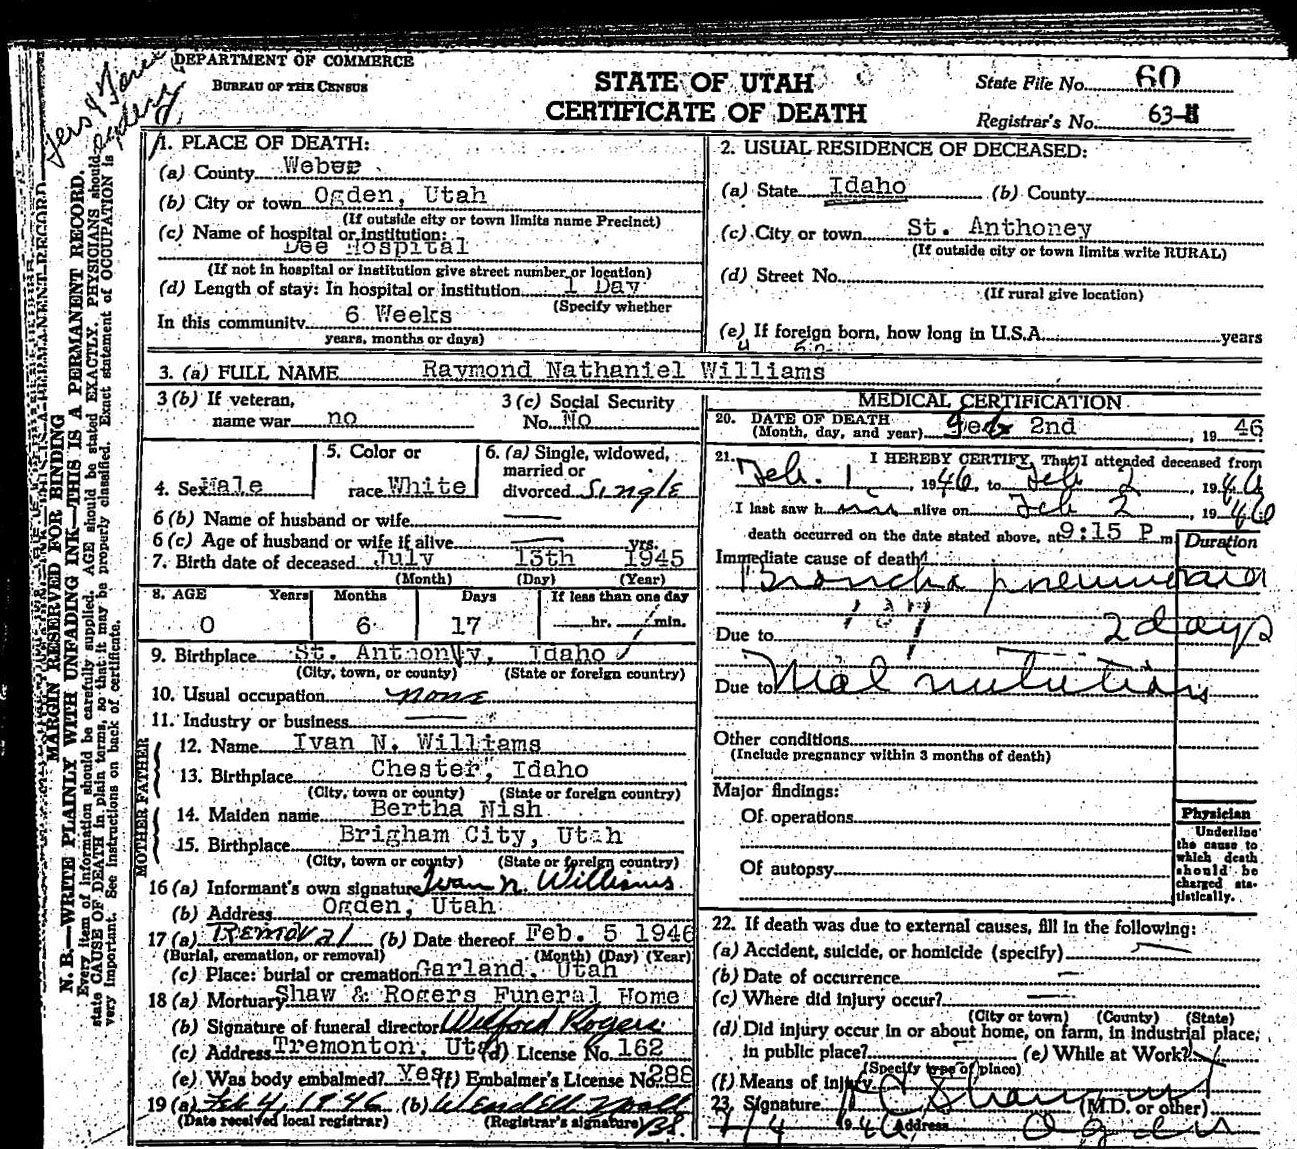 DEPARTMENT OF COMMERCE
BUREAU OF THE CENSUS
STATE OF UTAH
CERTIFICATE OF DEATH
State File No. 60
Registrar's No. 63-
MARGIN RESERVED FOR BINDING
N. B.—WRITE PLAINLY WITH UNFADING INK—THIS IS A PERMANENT RECORD.
Every item of information should be carefully supplied. AGE should be stated EXACTLY. PHYSICIANS should
state CAUSE OF DEATH in plain terms, so that it may be properly classified. Exact statement of OCCUPATION is
very important. See instructions on back of certificate.
1. PLACE OF DEATH:
(a) County Weber
(b) City or town Ogden, Utah
(If outside city or town limits name Precinct)
(c) Name of hospital or institution:
Dee Hospital
(If not in hospital or institution give street number or location)
(d) Length of stay: In hospital or institution 1 Day
(Specify whether
In this community 6 Weeks
years, months or days)
2. USUAL RESIDENCE OF DECEASED:
(a) State Idaho (b) County
(c) City or town St. Anthoney
(If outside city or town limits write RURAL)
(d) Street No.
(If rural give location)
(e) If foreign born, how long in U.S.A. years
3. (a) FULL NAME Raymond Nathaniel Williams
3 (b) If veteran, name war no
3 (c) Social Security No. No
4. Sex Male
5. Color or race White
6. (a) Single, widowed, married or divorced Single
6 (b) Name of husband or wife
6 (c) Age of husband or wife if alive yrs.
7. Birth date of deceased July 13th 1945
(Month) (Day) (Year)
8. AGE Years Months Days If less than one day
0 6 17 hr. min.
9. Birthplace St. Anthony, Idaho
(City, town, or county) (State or foreign country)
10. Usual occupation none
11. Industry or business
FATHER
12. Name Ivan N. Williams
13. Birthplace Chester, Idaho
(City, town or county) (State or foreign country)
MOTHER
14. Maiden name Bertha Nish
15. Birthplace Brigham City, Utah
(City, town or county) (State or foreign country)
16 (a) Informant's own signature Ivan N. Williams
(b) Address Ogden, Utah
17 (a) Removal (b) Date thereof Feb. 5 1946
(Burial, cremation, or removal) (Month) (Day) (Year)
(c) Place: burial or cremation Garland, Utah
18 (a) Mortuary Shaw & Rogers Funeral Home
(b) Signature of funeral director Wilford Rogers
(c) Address Tremonton, Utah (d) License No. 162
(e) Was body embalmed? Yes (f) Embalmer's License No. 288
19 (a) Feb 4, 1946 (b) Wendell
(Date received local registrar) (Registrar's signature)
MEDICAL CERTIFICATION
20. DATE OF DEATH
(Month, day, and year) Feb 2nd, 1946
21. I HEREBY CERTIFY, That I attended deceased from
Feb. 1, 1946, to Feb 2, 1946
I last saw him alive on Feb 2, 1946
death occurred on the date stated above, at 9:15 P m.
Duration
Immediate cause of death
Broncho pneumonia
Due to 2 days
Due to Mal nutrition
Other conditions
(Include pregnancy within 3 months of death)
Major findings:
Of operations
Of autopsy
Physician
Underline
the cause to
which death
should be
charged sta-
tistically.
22. If death was due to external causes, fill in the following:
(a) Accident, suicide, or homicide (specify)
(b) Date of occurrence
(c) Where did injury occur?
(City or town) (County) (State)
(d) Did injury occur in or about home, on farm, in industrial place,
in public place? (e) While at Work?
(Specify type of place)
(f) Means of injury
23. Signature (M.D. or other)
2/4 1946 Address Ogden